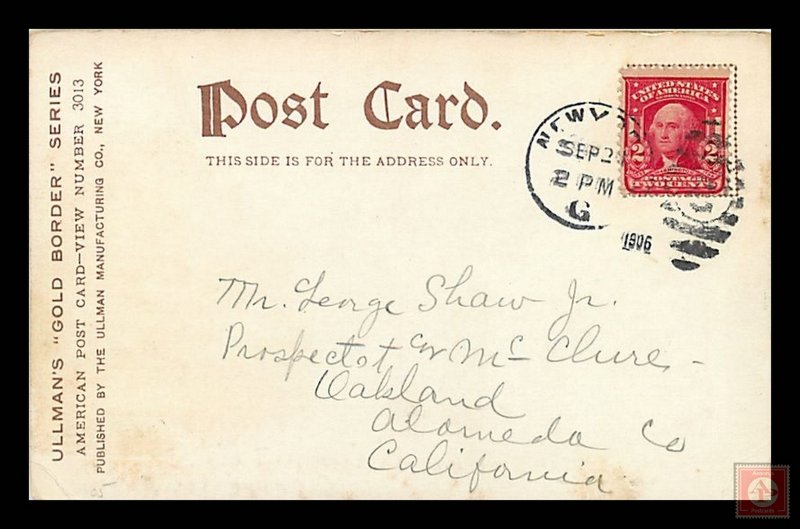 ULLMAN'S "GOLD BORDER" SERIES
AMERICAN POST CARD—VIEW NUMBER 3013
PUBLISHED BY THE ULLMAN MANUFACTURING CO., NEW YORK
Post Card.
THIS SIDE IS FOR THE ADDRESS ONLY.
UNITED STATES
OF AMERICA
2 2
POSTAGE
TWO CENTS
SEP
2 PM
G
1906
Mr. George Shaw Jr.
Prospect st cor Mc Clure -
Oakland
Alameda Co
California